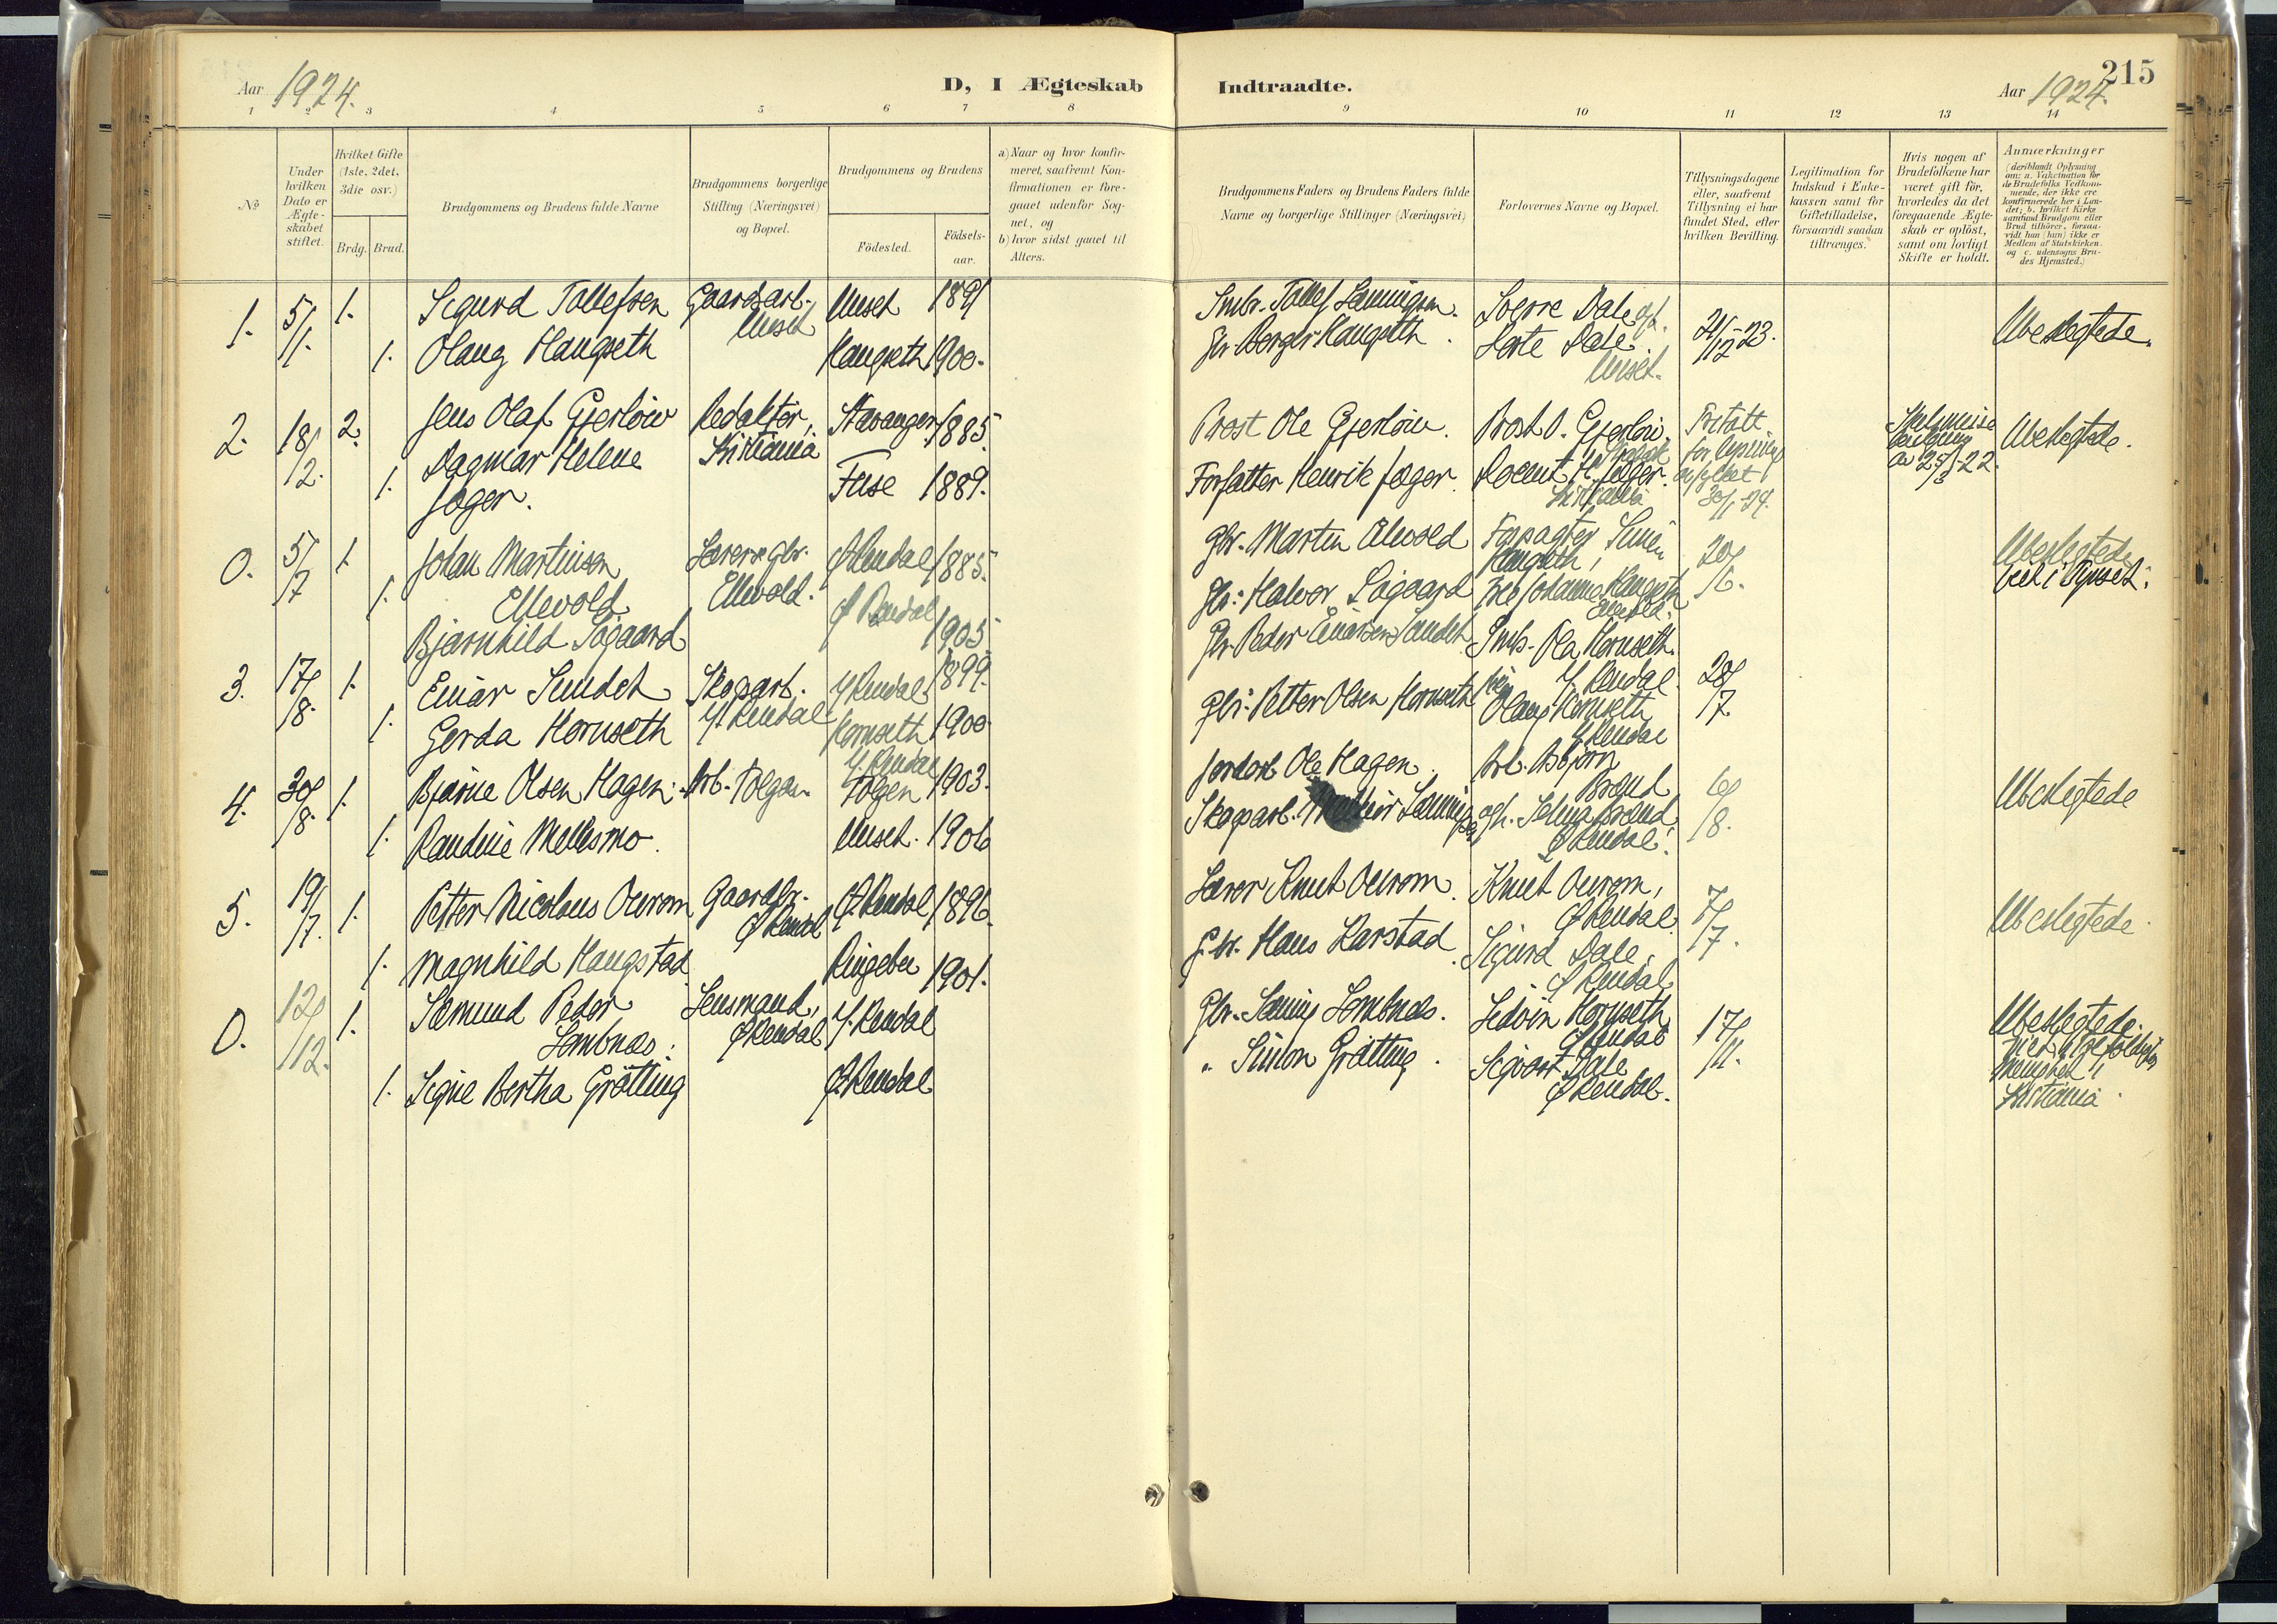 Aar 1924.
D, I Ægteskab
1 2 3 4 5 6 7 8
No
Under hvilken Dato er Ægteskabet stiftet.
Hvilket Gifte (1ste, 2det, 3die osv.)
Brdg. Brud.
Brudgommens og Brudens fulde Navne
Brudgommens borgerlige Stilling (Næringsvei) og Bopæl.
Brudgommens og Brudens
Födested.
Födsels-aar.
a) Naar og hvor konfirmeret, saafremt Konfirmationen er foregaaet udenfor Sognet, og
b) hvor sidst gaaet til Alters.
1. 5/1. 1. Sigurd Tollefsen Gaardsarb. Unset Unset 1891
1. Olaug Haugseth Haugseth 1900.
2. 18/2. 2. Jens Olaf Gjerlöw Redaktör, Kristiania Stavanger 1885
1. Dagmar Helene Jæger. Fuse 1889.
0. 5/7 1. Johan Martinsen Ellevold Lærer og gbr. Ellevold. Ø. Rendal 1885.
1. Bjarnhild Sögaard Ø Rendal 1905
3. 17/8. 1. Einar Sundet Skogarb. Y. Rendal Y Rendal 1899.
1. Gerda Hornseth Hornseth Y. Rendal 1900
4. 30/8. 1. Bjarne Olsen Hagen. Arb. Tolgen. Tolgen 1903.
1. Randine Mellesmo. Unset. 1906
5. 19/7. 1. Petter Nicolaus Ourom Gaardbr. Ø Rendal Ø. Rendal 1896.
1. Magnhild Haugstad Ringebu 1901.
0. 12/12. 1. Sæmund Peder Lombnæs. Lensmand, Ø Rendal Y. Rendal
1. Signe Bertha Grötting Ø Rendal
Indtraadte.
215
Aar 1924.
9 10 11 12 13 14
Brudgommens Faders og Brudens Faders fulde Navne og borgerlige Stillinger (Næringsvei)
Forlovernes Navne og Bopæl.
Tillysningsdagene eller, saafremt Tillysning ei har fundet Sted, efter hvilken Bevilling.
Legitimation for Indskud i Enkekassen samt for Giftetilladelse, forsaavidt saadan tiltrænges.
Hvis nogen af Brudefolkene har været gift för, hvorledes da det foregaaende Ægteskab er oplöst, samt om lovligt Skifte er holdt.
Anmærkninger
(deriblandt Oplysning om: a. Vakcination for de Brudefolks Vedkommende, der ikke ere konfirmerede her i Landet; b. hvilket Kirkesamfund Brudgom eller Brud tilhörer, forsaavidt han (hun) ikke er Medlem af Statskirken. og c. udensogns Brudes Hjemsted.)
Smbr. Tollef Sæmingsen. Sverre Dale og 21/12-23. Ubeslegtede.
Gbr. Berger Haugseth. Dale. Unset.
Prost Ole Gjerlöw. Prost O. Gjerlöw, Fritatt for lysning av fylket 30/1-24. Skilsmisse bevilling Ubeslegtede.
Forfatter Henrik Jæger. Docent H. Jæger. Kristiania
Gbr. Martin Elvold Forpagter Simen Haugseth, 20/6. Ubeslegtede
Gbr. Halvor Sögaard Johanne Haugseth viet i Rendal.
Gbr. Peder Einarsen Sundet Smb. Ola Hornseth. Y. Rendal 28/7.
Gbr. Petter Olsen Hornseth Olaug Hornseth Y Rendal
Jordarb. Ole Hagen. Arb. Asbjörn Brænd 10/8. Ubeslegtede
Skogarb. Sæmingsen og fr. Selma Brænd Ø Rendal.
Lærer Knut Ourom. Knut Ourom, Ø Rendal. 7/7. Ubeslegtede.
Gbr. Hans Karstad. Sigurd Dale, Ø Rendal.
Gbr. Sæming Lombnæs. Ledvin Hornseth Ø Rendal 17/11. Ubeslegtede.
" Simon Grötting. Sigvart Dale Ø Rendal. Kristiania.